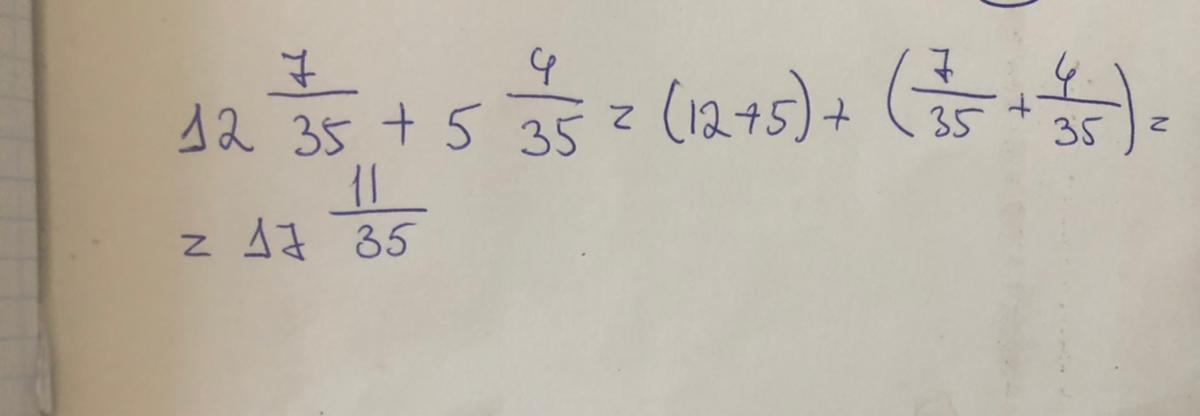 12 7/35 + 5 4/35 = (12+5) + (7/35 + 4/35) =
= 17 11/35